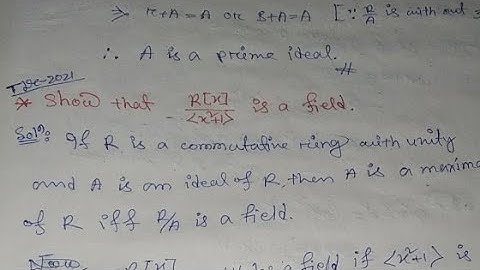 ⇒ r+A = A or s+A = A [∵ R/A is without
∴ A is a prime ideal. #
TDC-2021
* Show that R[x]/<x²+1> is a field.
Solⁿ: If R is a commutative ring with unity
and A is an ideal of R, then A is a maxima
of R iff R/A is a field.
Now R[x] a field if <x²+1> is